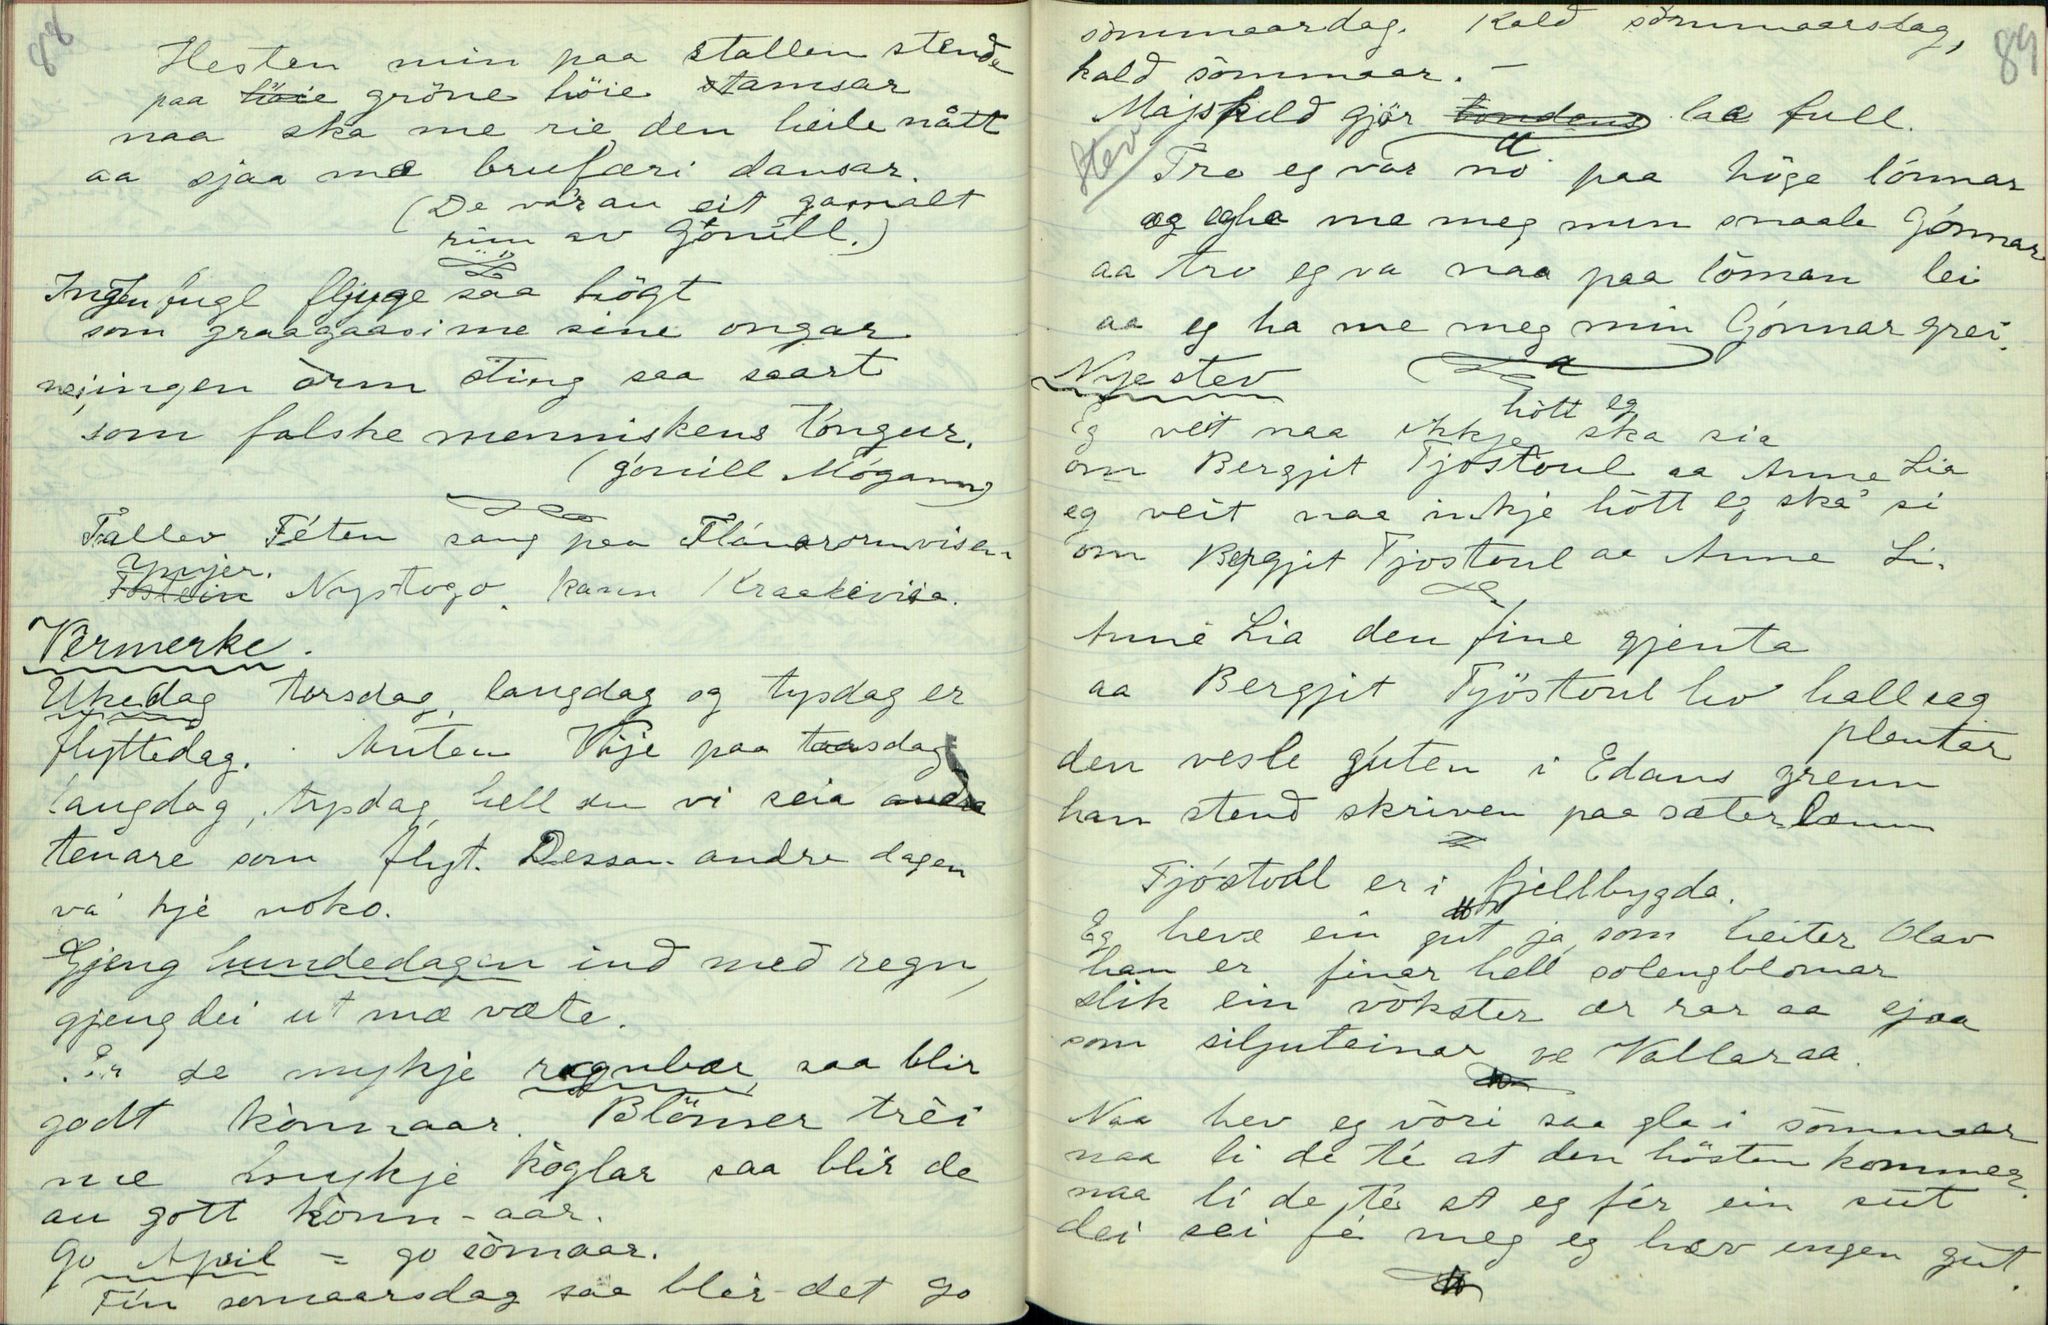 88
Hesten min paa stallen stend
paa höie gröne höie stamsar
naa ska me rie den heile nått
aa sjaa mæ brufæri dansar.
(De var au eit gamalt
rim av Gónill.)
Ingen fugl fljyge saa högt
som graagaasi me sine ongar
nei, ingen òrm sting saa saart
som falske menniskens tongur.
(Gónill Mógann)
Tallev Féten song paa Flánarormvisen
Yngjer.
Fostein Nystogo kann Kraakevisa.
Vermerke.
Ukedag torsdag, laugdag og tysdag er
flyttedag. Anten Vije paa taarsdag
laugdag, tysdag hell du vi seia andre
tenare som flyt. Dessan andre dagen
va' kje noko.
Gjeng hundedagen ind med regn,
gjeng dei ut mæ væte.
Er de mykje rognbær saa blir
godt kònnaar. Blömer trèi
me mykje köglar saa blir de
au gott kònn-aar.
Go April = go sömaar.
Fin somaarsdag saa blir det go
89
sommaardag. Kald sòmmaarsdag,
kald sömmaar. –
Majskuld gjör bondens laa full.
Stev
Tro eg var no paa höge lónnar
og eg ha me meg min snaale Gónnar
aa tro eg va naa paa lòman lei
aa eg ha me meg min Gónnar grei.
Nye stev
hòtt eg
Eg veit naa ikkje ska sia
om Bergjit Tjostoul aa Anne Lia
eg veit naa inkje hòtt eg ska' si
om Bergjit Tjostoul aa Anne Li.
Anne Lia den fine gjenta
aa Bergjit Tjöstoul ho hall seg
plentar
den vesle guten i Edans grenn
han stend skriven paa sæterlænn
Tjóstoul er i fjellbygda.
Eg heve ein gut ja som heiter Olav
han er finar hell solengblomar
slik ein vòkster ær rar aa sjaa
som siljuteinar ve Vallaraa.
Naa hev eg vòri saa gla i sòmmaar
naa li de té at den hösten kommer.
naa li de té at eg fér ein sut
dei sei fé meg eg hæv ingen gut.